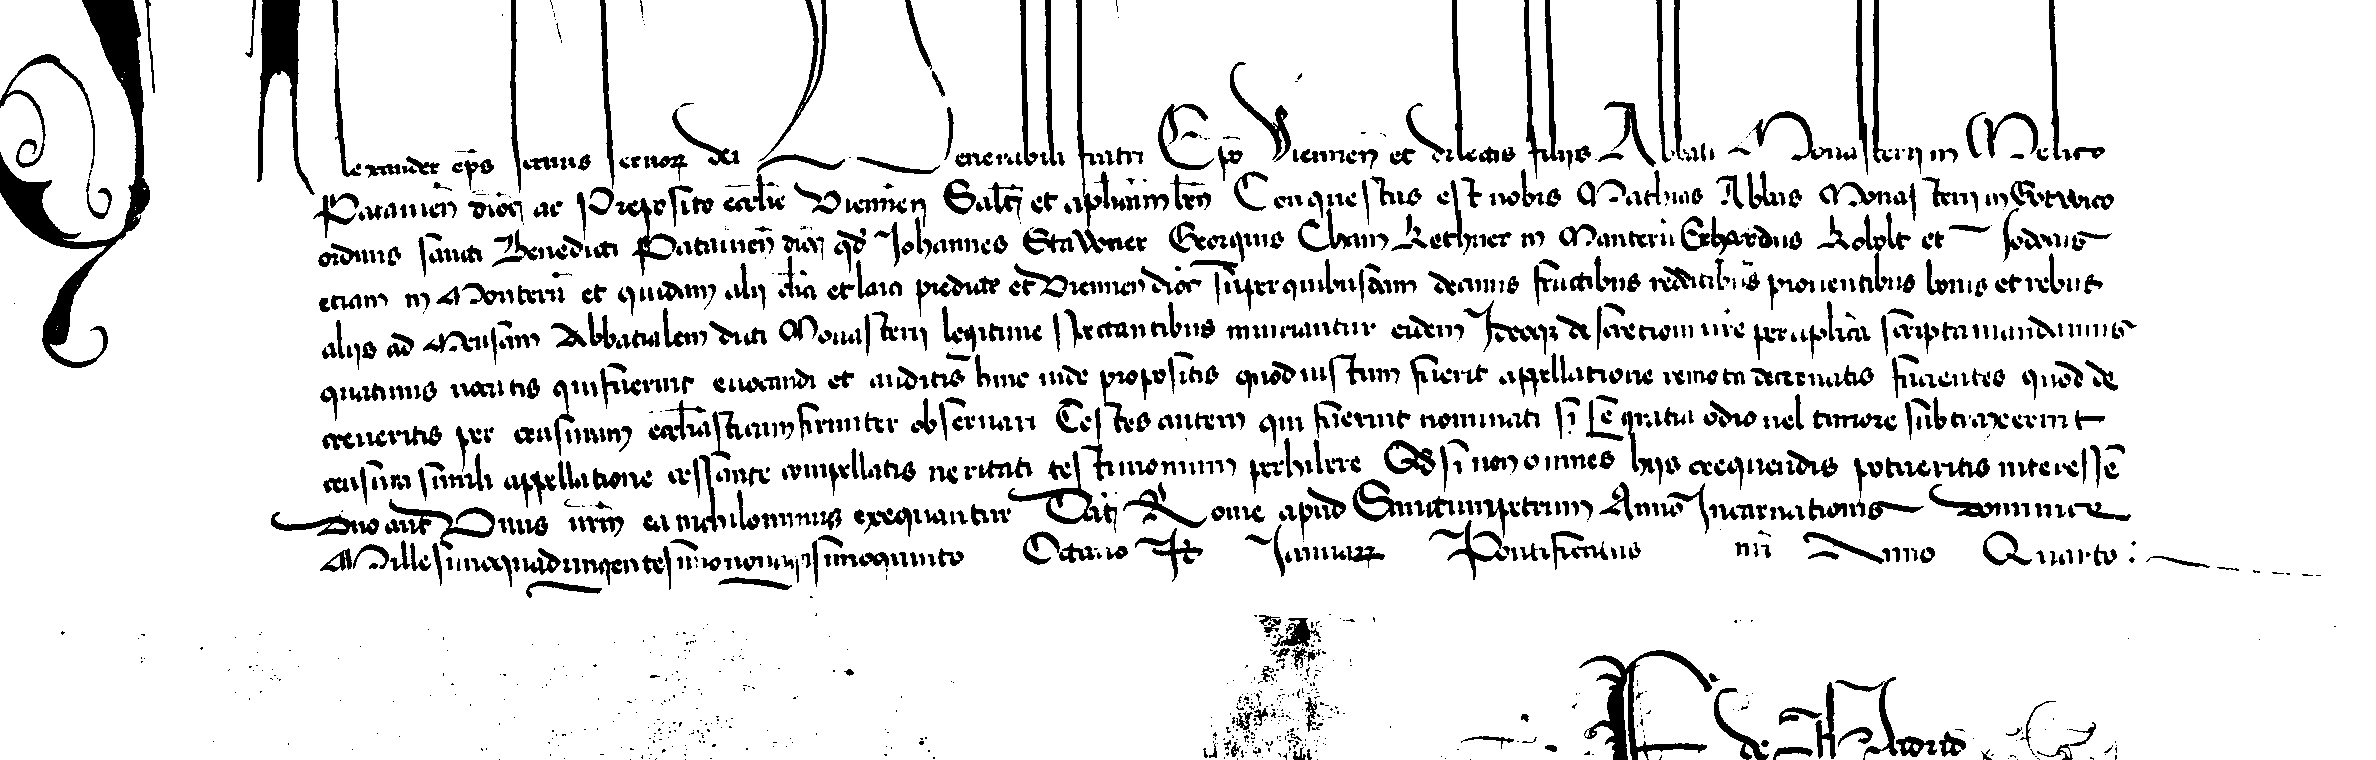 Alexander ep̄s seruus seruoꝝ dei Venerabili fratri Ep̄o Viennen̄ et dilectis filijs Abbati Monasterij in Melico
Patauien̄ dioc̄ ac Preposito eccl̄ie Viennen̄ Saltm̄ et ap̄licam ben̄ Conquestus est nobis Mathias Abbas Monasterij in Gotwico
ordinis sancti Benedicti Patauien̄ dioc̄ qd̄ Johannes Stawner Georgius Cham Rethner in Manterū Erhardus et Jodocus
etiam in Monterū et quidam alij cl̄ici et laici predicte et Viennen̄ dioc̄ sup̄er quibusdam decimis fructibus redditibus prouentibus bonis et rebus
alijs ad Mensam Abbatialem dicti Monasterij legitime spectantibus iniuriantur eidem Ideoqꝫ discretioni vr̄e per ap̄lica scripta mandamus
quatinus uocatis qui fuerint euocandi et auditis hinc inde propositis quod iustum fuerit appellatione remota decernatis facientes quod de
creueritis per censuram eccl̄iasticam firmiter obseruari Testes autem qui fuerint nominati si se gratia odio uel timore subtraxerint
censura simili appellatione cessante compellatis ueritati testimonium perhibere Qd̄ si non omnes hijs exequendis potueritis interesse
duo aut Vnus vr̄m ea nichilominus exequantur Dat̄ Rome apud Sanctumpetrum Anno Incarnationis dominice
Millesimoquadringentesimononagesimoquinto Octauo kl̄ Januarꝝ Pontificatus nr̄i Anno Quarto :
de